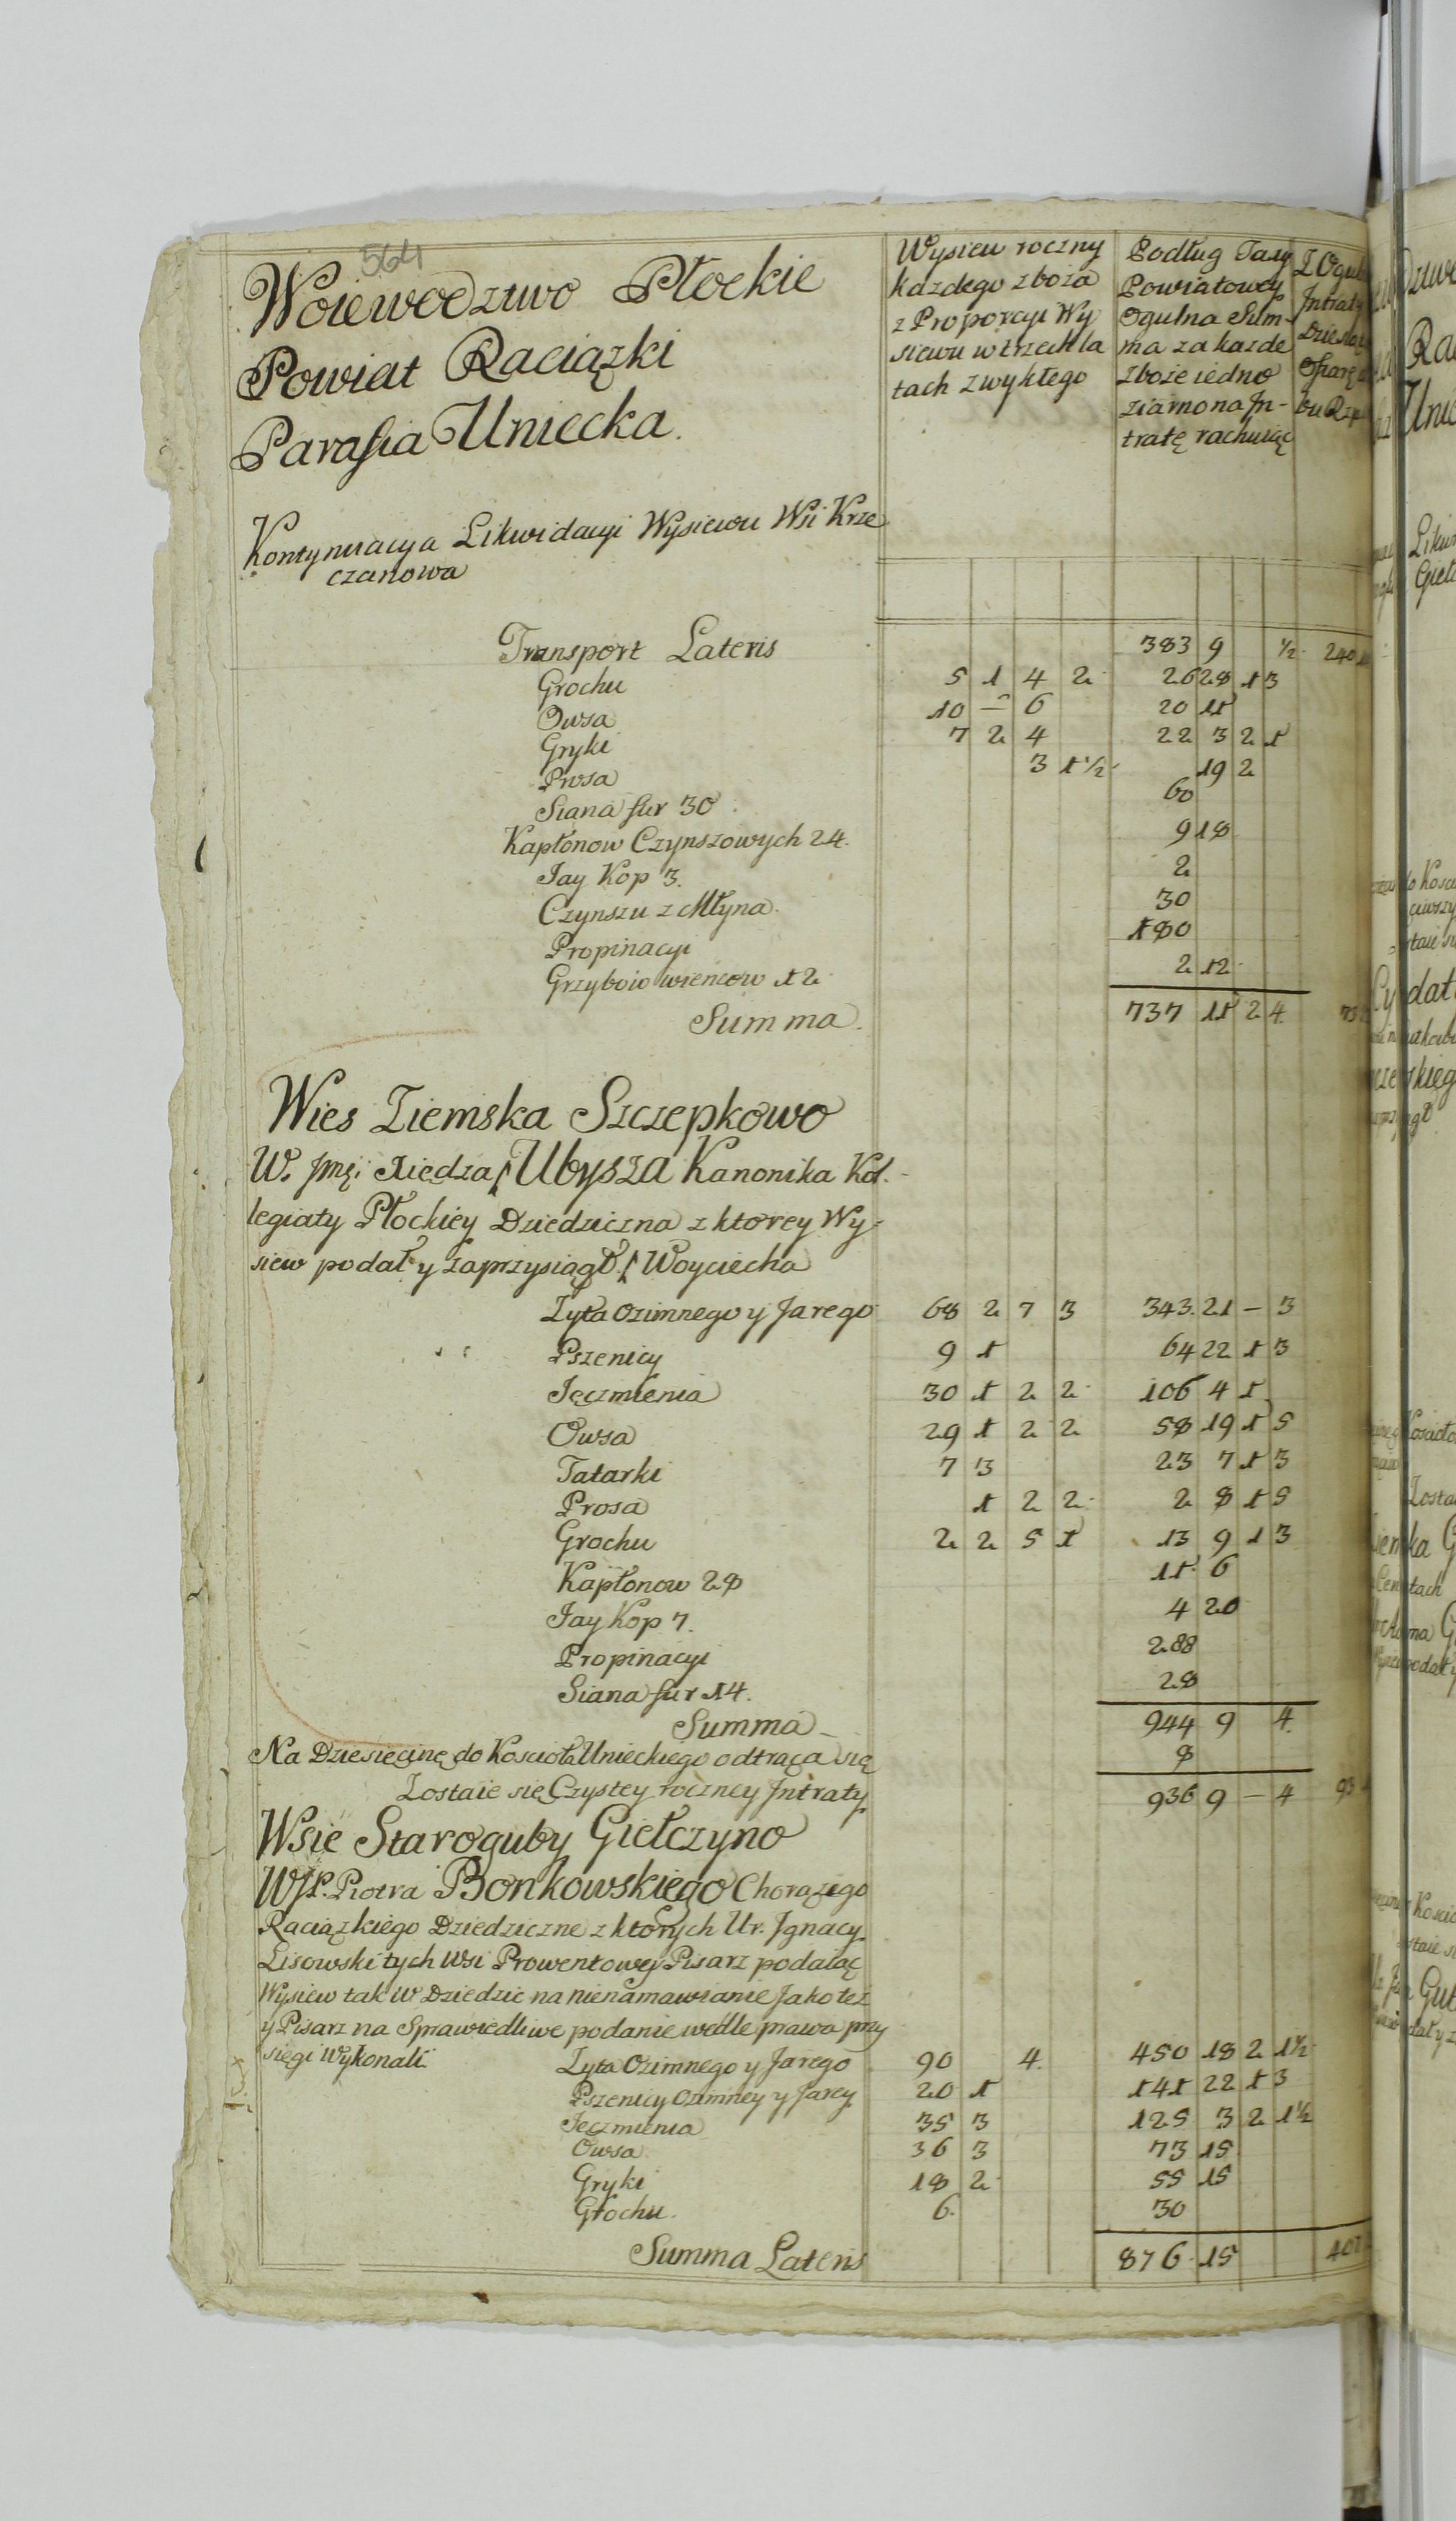 564
Woiewodztwo Płockie
Powiat Raciązki
Parafia Uniecka.
Wysiew roczny
kazdego zboza
z Proporcyi Wy
siewu w trzech la
tach zwykłego
Podług Taxy
Powiatowey
Ogulna Sum-
ma za kazde
zboze iedno
ziarno na In-
tratę rachuiąc
Z Ogul
Intraty
Kontynuacya Likwidacyi Wysiewu Wsi Krze
czanowa
Transport Lateris 383 9 ½ 240
Grochu 5 1 4 2 26 28 1 3
Owsa 10 — 6 20 11
Gryki 7 2 4 22 3 2 1
Prosa 3 1½ 19 2
Siana fur 30 60
Kapłonow Czynszowych 24. 9 18
Jay Kop 3. 2
Czynszu z Młyna 30
Propinacyi 180
Grzybow wiencow 12 2 12
Summa 737 11 2 4
Wies Ziemska Szczepkowo
W. Jmci Xiedza Ubysza Kanonika Kol-
legiaty Płockiey Dziedziczna z ktorey Wy-
siew podał y zaprzysiągł Woyciecha
Zyta Ozimnego y Jarego 68 2 7 3 343 21 — 3
Pszenicy 9 1 64 22 1 3
Jęczmienia 30 1 2 2 106 4 1
Owsa 29 1 2 2 58 19 1 5
Tatarki 7 3 23 7 1 3
Prosa 1 2 2 2 8 1 5
Grochu 2 2 5 1 13 9 1 3
Kapłonow 28 11 6
Jay Kop 7. 4 20
Propinacyi 288
Siana fur 14. 28
Summa 944 9 4
Na Dziesięcinę do Kosciola Unieckiego odtrąca się 8
Zostaie się Czystey roczney Intraty 936 9 — 4
Wsie Staroguby Giełczyno
WJP. Piotra Bonkowskiego Chorązego
Raciązkiego Dziedziczne z ktorych Ur. Ignacy
Lisowski tych Wsi Prowentowy Pisarz podaiąc
Wysiew tak W Dziedzic na nienamawianie Jako tez
y Pisarz na Sprawiedliwe podanie wedle prawa przy
sięgi Wykonali
Zyta Ozimnego y Jarego 90 4 450 18 2 1½
Pszenicy Ozimney y Jarey 20 1 141 22 1 3
Jęczmienia 35 3 125 3 2 1½
Owsa 36 3 73 15
Gryki 18 2 55 15
Grochu 6 30
Summa Lateris 876 15